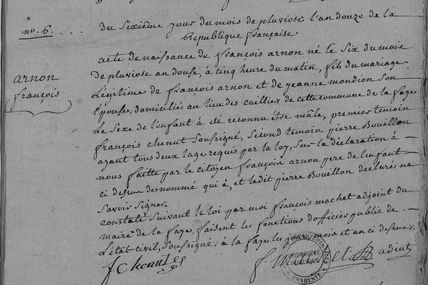 no. 6.
Du Sixième jour du mois de pluviose l'an douze de la
République française
arnon
françois
acte de naissance de françois arnon né le Six du mois
de pluviose an douse, à cinq heure du matin, fils du mariage
Légitime de françois arnon et de jeanne mondion Son
Epouse, domiciliés au lieu des cailliers de cette commune de la faye
Le Sexe de l'enfant a été reconnu être mâle, premier temoin
françois chenut Soussigné, Second temoin pierre Bouillon
ayant tous deux l'age requis par la loy, Sur la déclaration à
nous faitte par le citoyen françois arnon pere de l'enfant
ci dessus desnommé qui à, et ledit pierre Bouillon déclarés ne
Savoir Signer
constaté Suivant la loi par moi françois machet adjoint du
maire de la faye, faisant les fonctions d'officier public de
L'état civil, Soussigné; à la faye les jour mois et an dessus.
f. Chenut
f. machet adjoint
CHARENTE